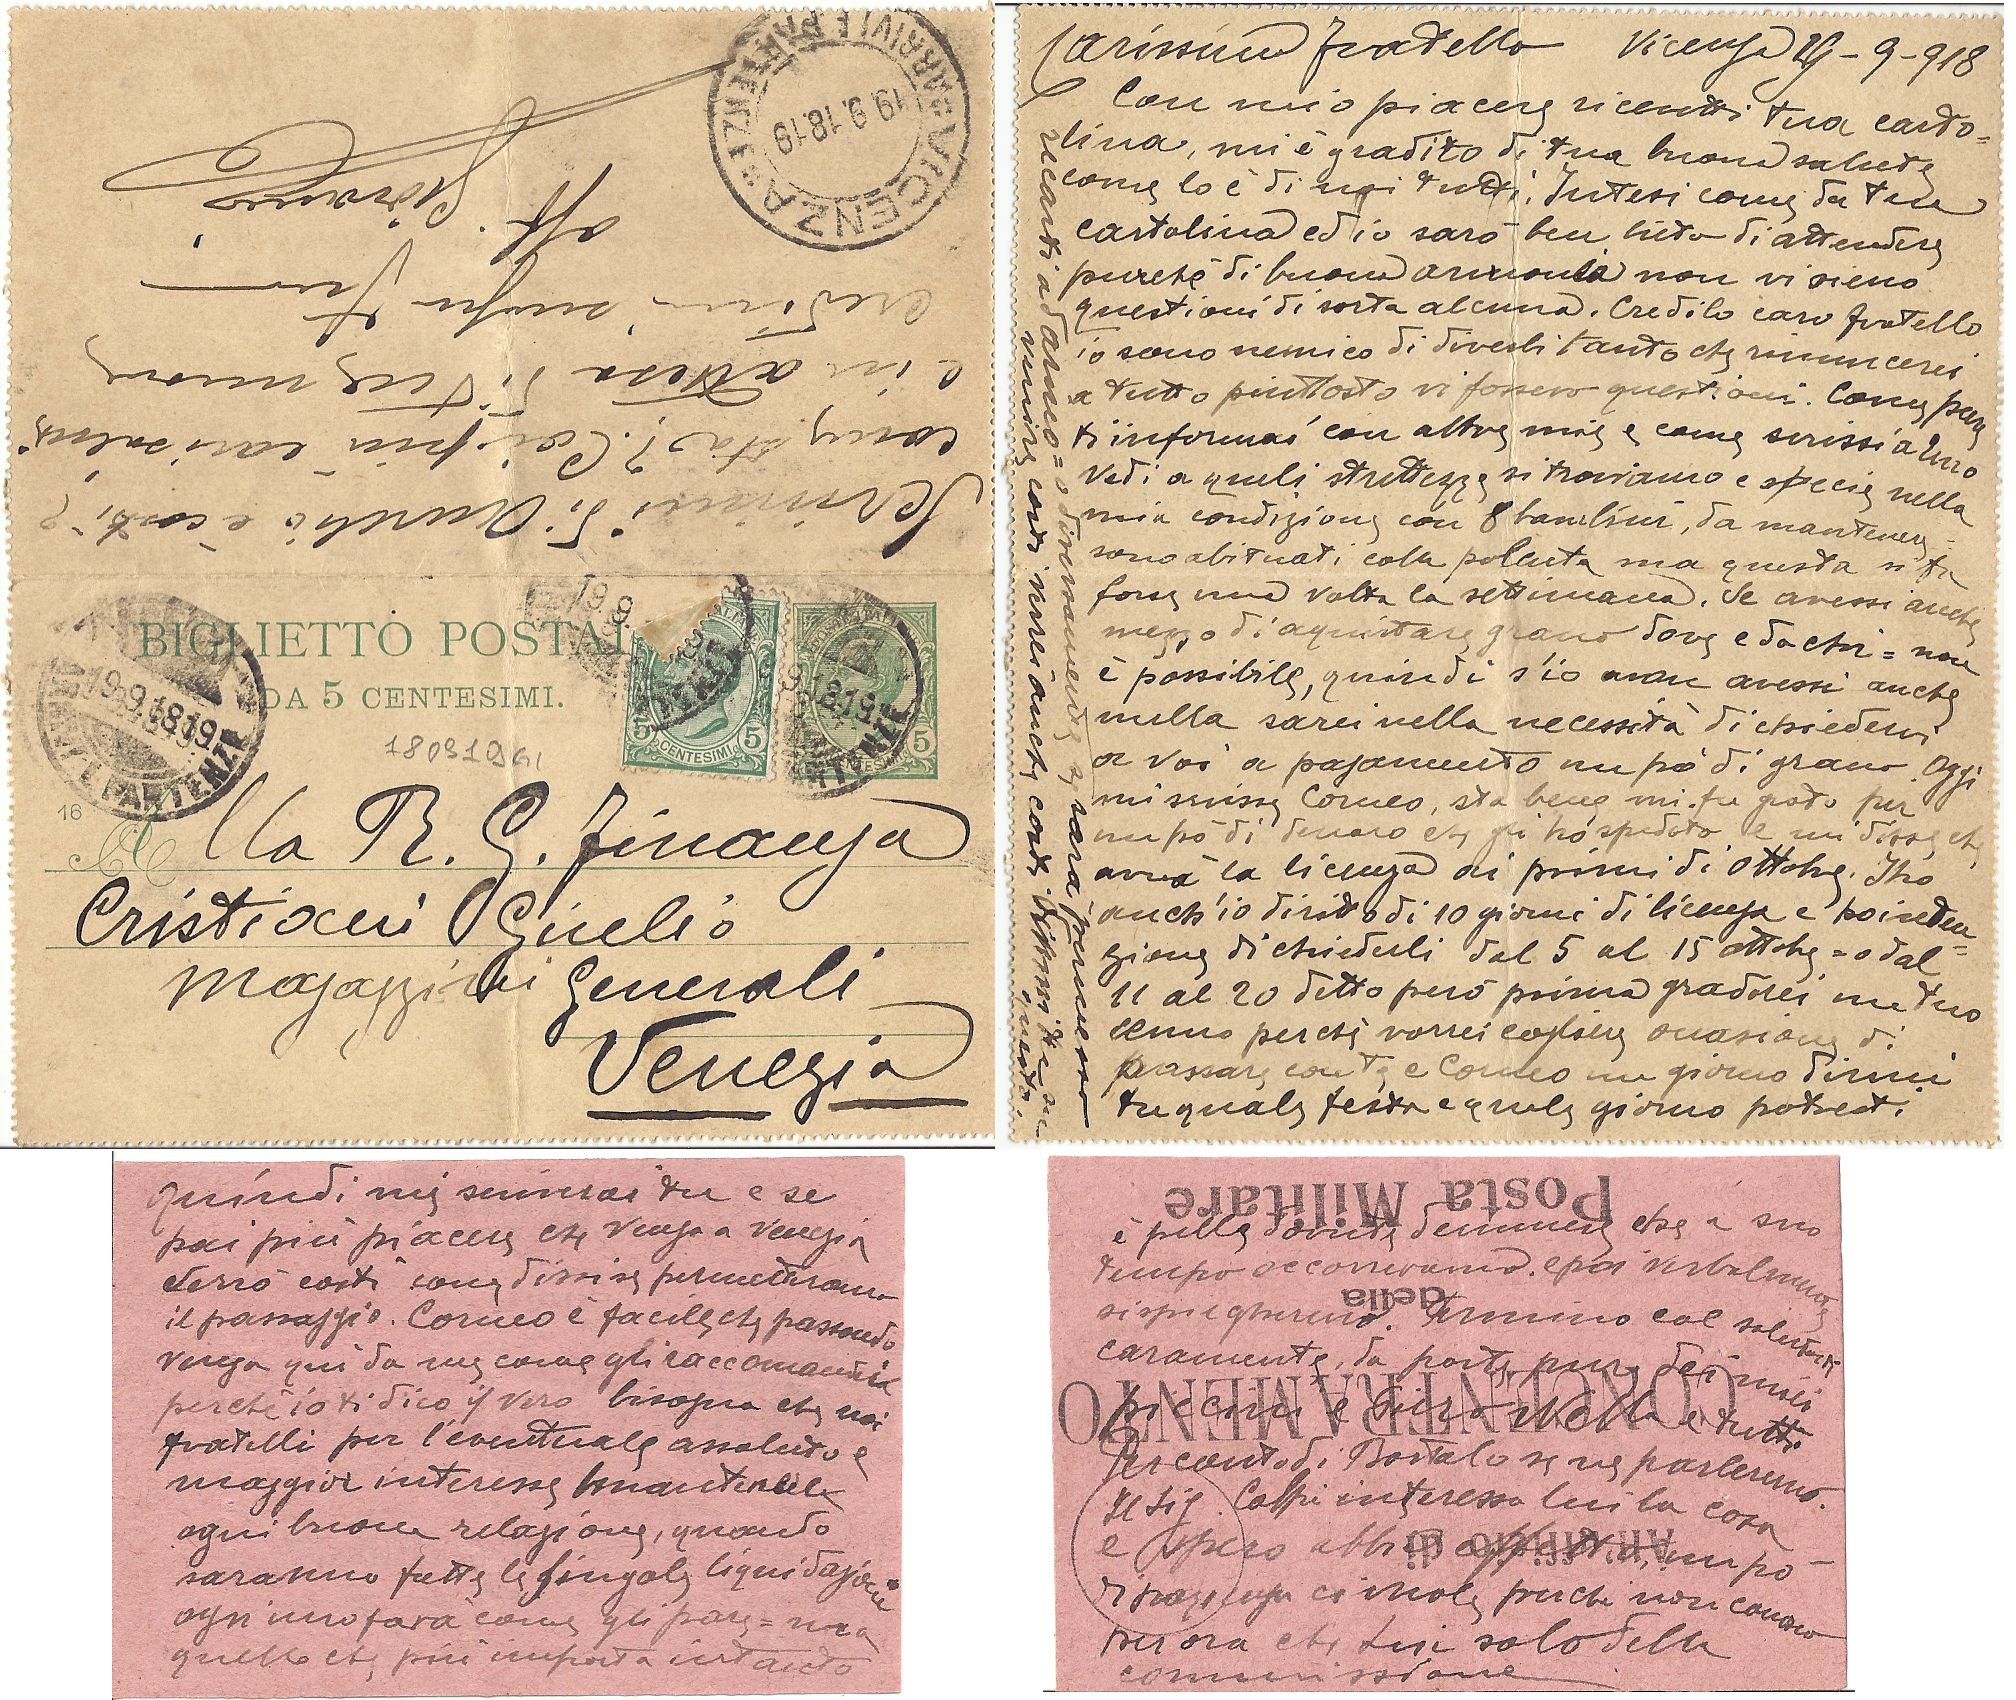 VICENZA
ARRIVI E PARTENZE
19.9.18.19
Scrivimi di Aurelio è costì?
come sta? Coi più cari saluti
e in attesa di tue nuove
credimi sempre tuo
aff.
BIGLIETTO POSTALE
DA 5 CENTESIMI.
18091941
5 CENTESIMI 5
5
19.9.18.19
PARTENZE
16
Alla R. G. Finanza
Cristiani Giulio
Magazzini Generali
Venezia
Carissimo Fratello Vicenza 19-9-918
Con mio piacere ricevetti tua carto=
lina, mi è gradito di tua buona salute
come lo è di noi tutti. Intesi come da tua
cartolina ed io sarò ben lieto di attendere
purchè di buona armonia non vi sieno
questioni di sorta alcuna. Credilo caro fratello
io sono nemico di diverbi tanto che rinuncerei
a tutto piuttosto vi fossero questioni. Come pure
t'informai con altre mie e come scrissi a
Vedi a quali strettezze si troviamo e specie nella
mia condizione con 8 bambini, da mantenere
sono abituati colla polenta ma questa si fa
forse una volta la settimana. Se avessi anche
mezzo di aquistare grano dove e da chi = non
è possibile, quindi s'io non avessi anche
nulla sarei nella necessità di chiedervi
a voi a pagamento un pò di grano. Oggi
mi scrisse Corneo, sta bene mi fu grato per
un pò di denaro che gli hò spedito e mi disse che
avrà la licenza ai primi di ottobre. Ho
anch'io diritto di 10 giorni di licenza e hò inten=
zione di chiederli dal 5 al 15 ottobre = o dal
11 al 20 ditto però prima gradirei un tuo
cenno perchè vorrei cogliere occasione di
passare con te e Corneo un giorno dimmi
tu quale festa e quale giorno potresti
recarti ad = o diversamente se sarà permesso
venire costì verrei anche costì
questi.
quindi mi scriverai tu e se
hai più piacere che venga a Venezia
verrò costì come dissi se permetteranno
il passaggio. Corneo è facile che passando
venga qui da me come gli raccomandai
perchè io ti dico il vero bisogna che noi
fratelli per l'eventuale assoluto e
maggior interesse mantenere
ogni buona relazione, quando
saranno fatte le singole liquidazioni
ogni uno farà come gli pare = ma
quello che più importa intanto
Posta Militare
della
CONCENTRAMENTO
Ufficio di
è pelle dovute denuncie che a suo
tempo occorreranno e poi verbalmente
si spiegheremo. Termino col salutarti
caramente, da parte pure dei miei
piccini e e tutti
Per conto di Bortolo se ne parleremo.
Il Sig. interessa lui la cosa
e spero abbia un pò
di pazienza ci vuole perchè non conosco
per ora che tuoi solo della
commissione